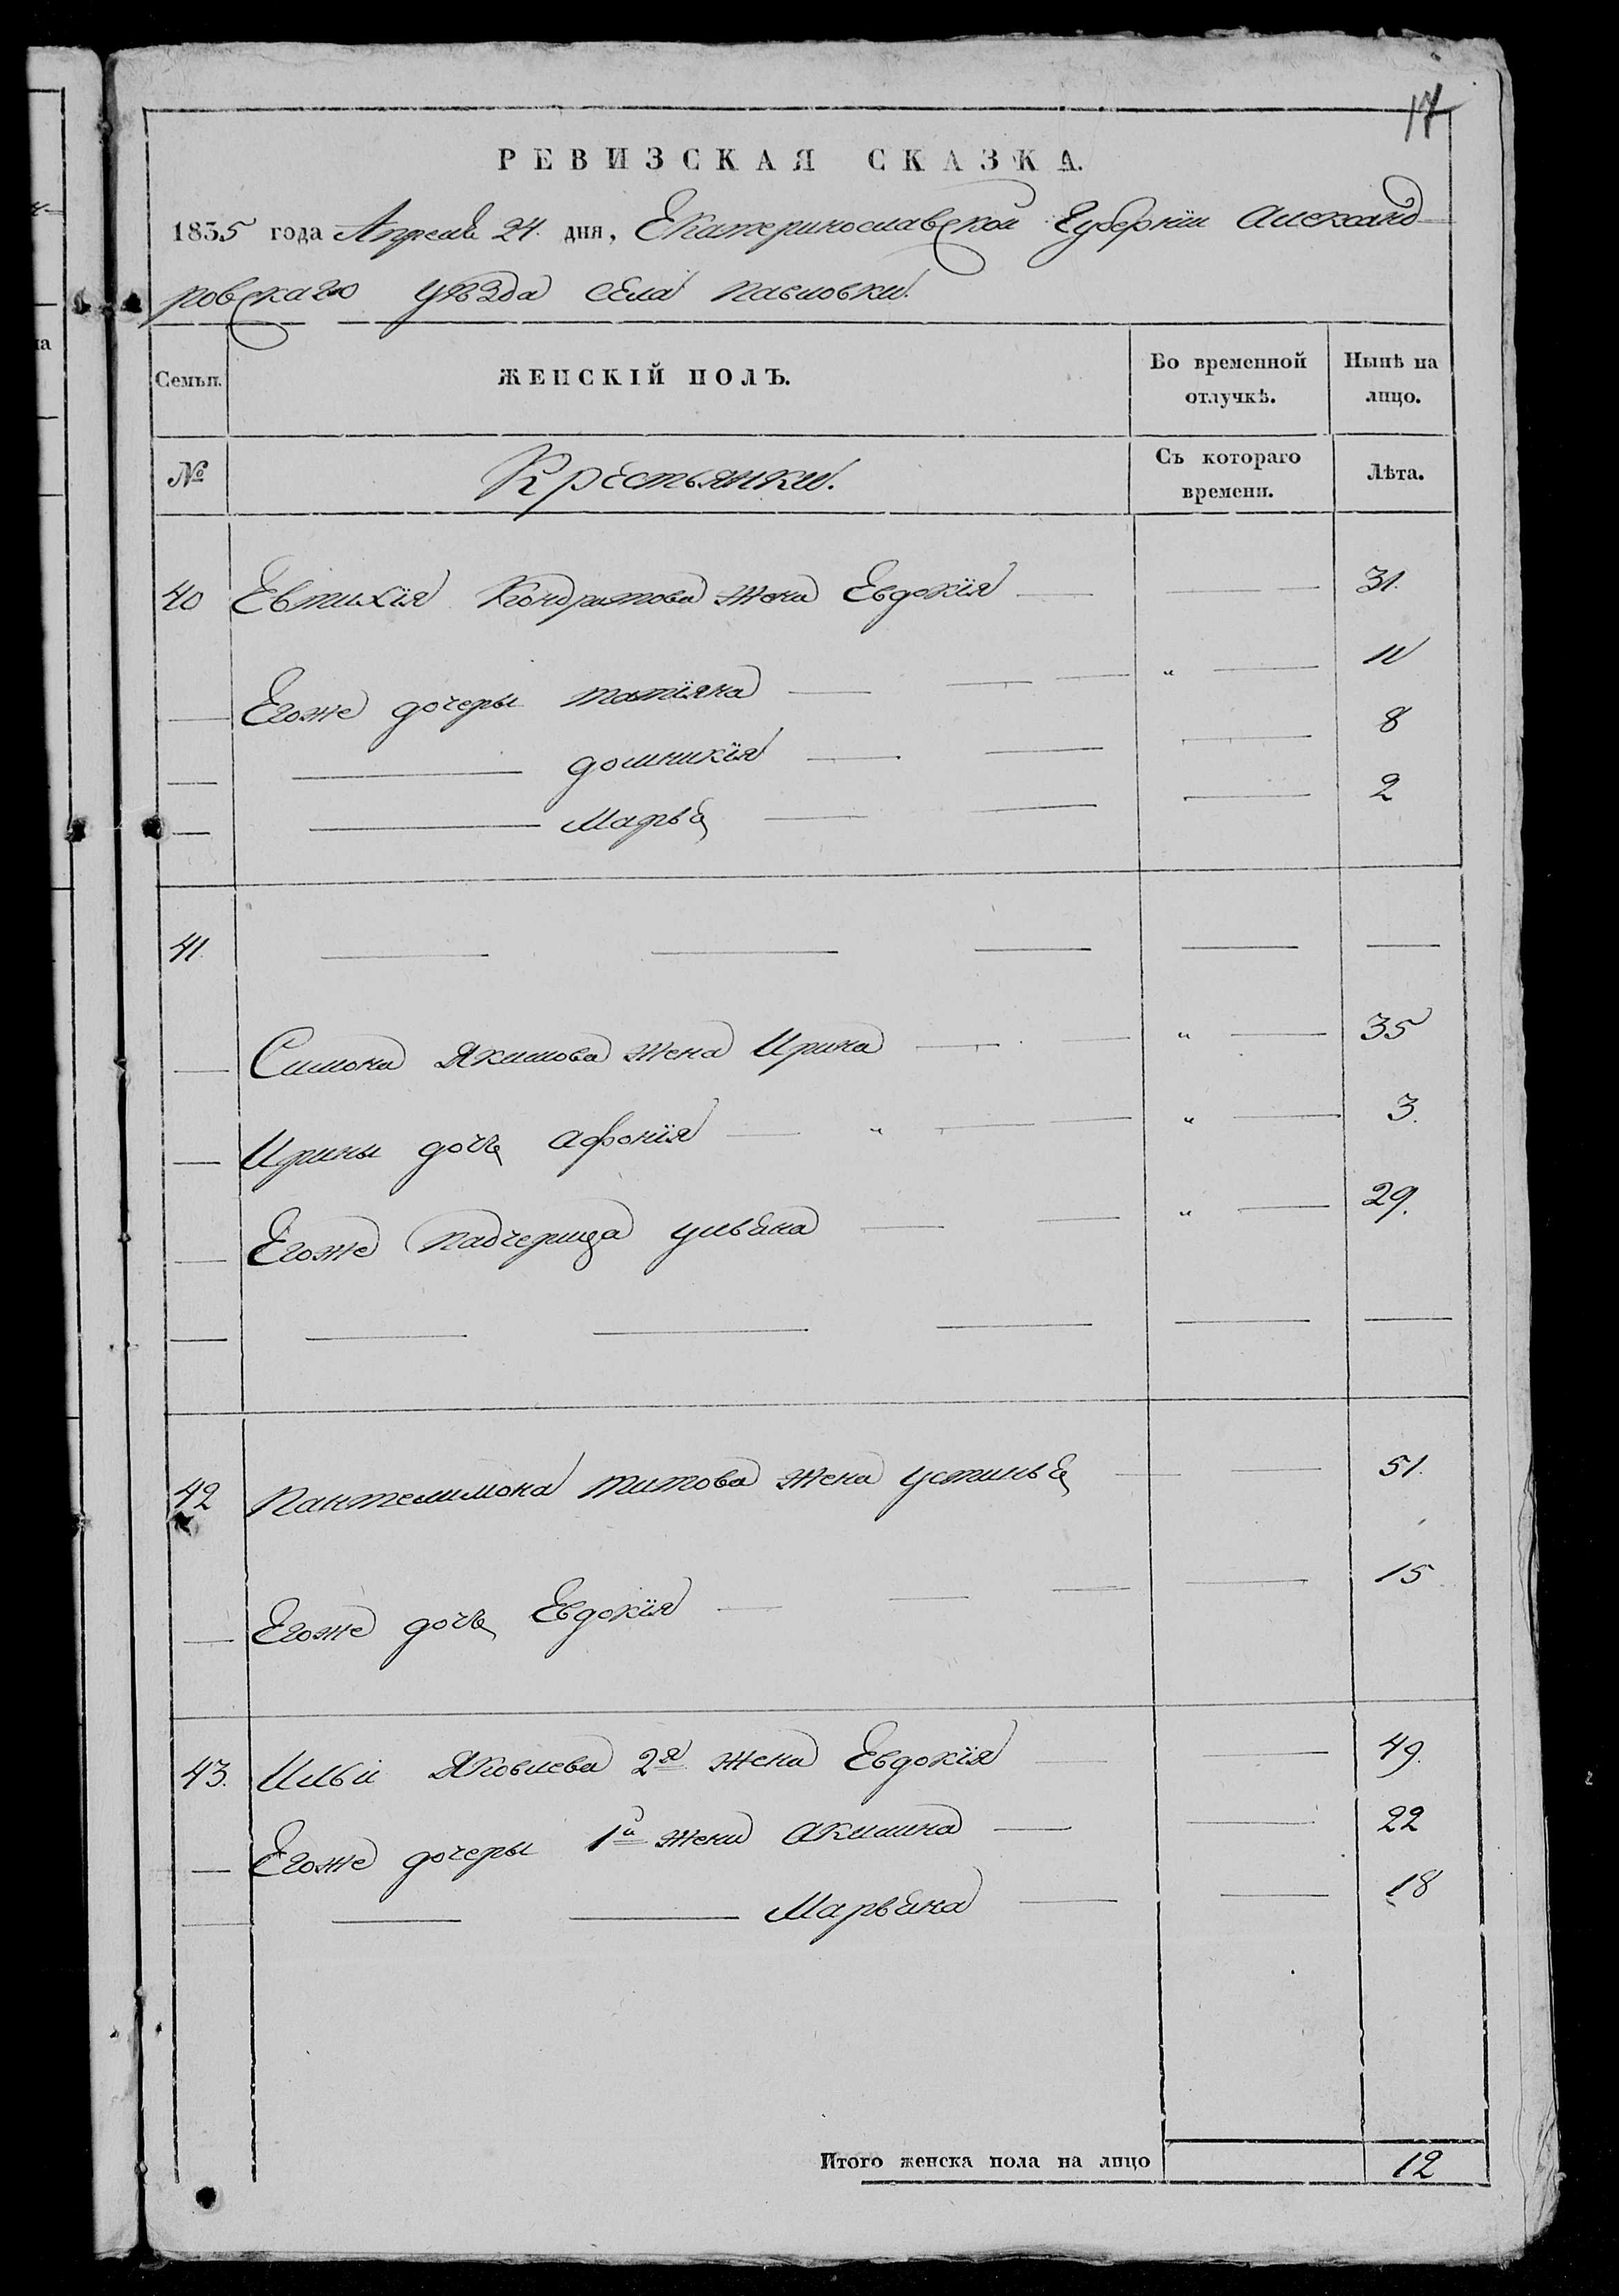 17
РЕВИЗСКАЯ СКАЗКА.
1835 года Апреля 24. дня, Екатеринославской Губернїи Александ-
ровскаго уѣзда села Павловки.
Семьи. ЖЕНСКІЙ ПОЛЪ. Во временной отлучкѣ. Нынѣ на лицо.
№ Крестьянки. Съ котораго времени. Лѣта.
40 Евтихїя Кондратова жена Евдокїя — — 31.
— Егоже дочеры татїяна — — — " — 11
— — домникїя — — — 8
— — Марья — — — 2
41. — — — — —
— Симона Якимова жена Ирина — — " — 35
— Ирины дочь афонїя — " — — " — 3.
— Егоже падчерица ульяна — — " — 29.
— — — — — —
42 Пантелимона титова жена устинья — — 51.
— Егоже дочь Евдокїя — — — — 15
43. Ильи Яковлева 2я жена Евдокїя — — 49.
— Егоже дочеры 1й жены акилина — — 22
— — — Марьяна — — 18
Итого женска пола на лицо 12